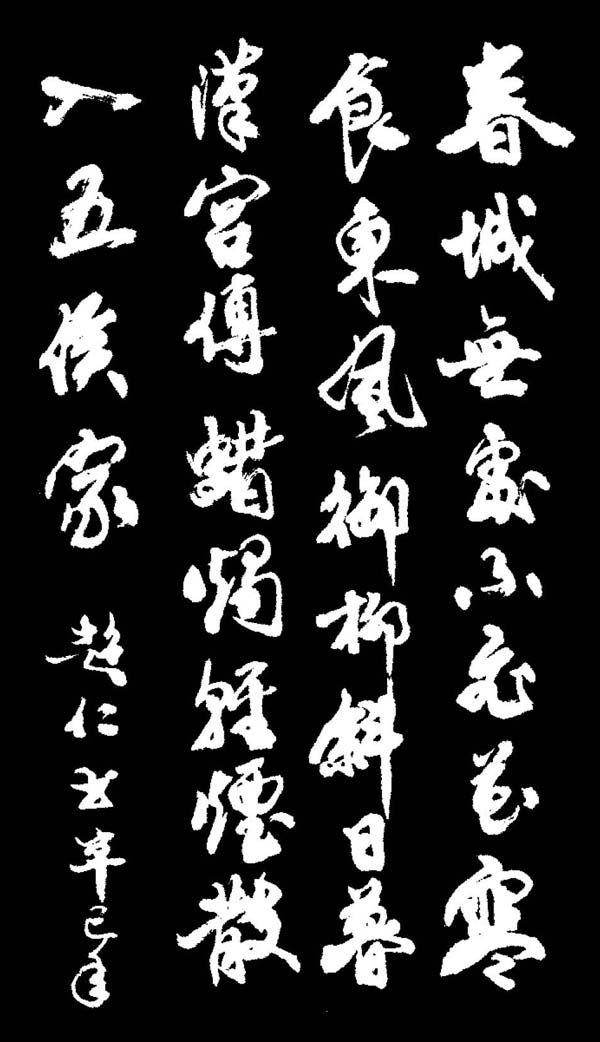 春城無處不飛花寒
食東風御柳斜日暮
漢宮傳蠟燭輕煙散
入五侯家 趙仁書辛巳年